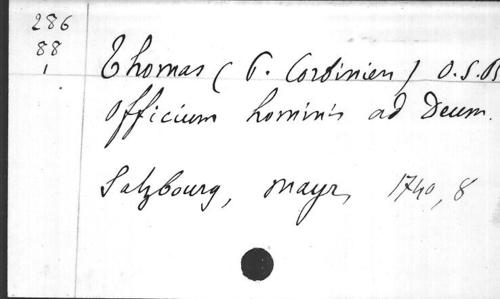 286
88
1
Thomas (P. Corbinien) O.S.B
Officium hominis ad Deum.
Salzbourg, Mayr, 1740, 8